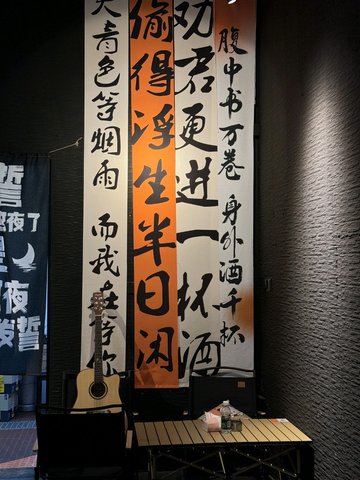 誓
夜了
夜
发誓
天青色等烟雨 而我在等你
偷得浮生半日闲
劝君更进一杯酒
腹中书万卷 身外酒千杯